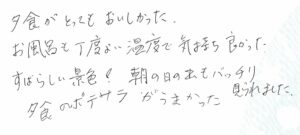 夕食がとってもおいしかった.
お風呂も丁度よい温度で気持ち良かった.
すばらしい景色! 朝の日の出もバッチリ見られました.
夕食のポテサラがうまかった